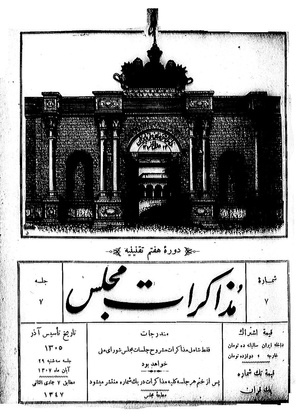 دورهٔ هفتم تقنینیه
شمارهٔ
۷
مذاکرات مجلس
جلسه
۷
قیمت اشتراک
داخله ایران سالیانه ده تومان
خارجه » دوازده تومان
قیمت تک شماره
یک قران
مندرجات
فقط شامل مذاکرات مشروح جلسات مجلس شورای ملی
خواهد بود
پس از ختم هر جلسه کلیه مذاکرات در یک شماره منتشر میشود
مطبعه مجلس
تاریخ تأسیس آذر
۱۳۰۵
جلسه سه شنبه ۲۹
آبان ماه ۱۳۰۷
مطابق ۷ جمادی الثانی
۱۳۴۷